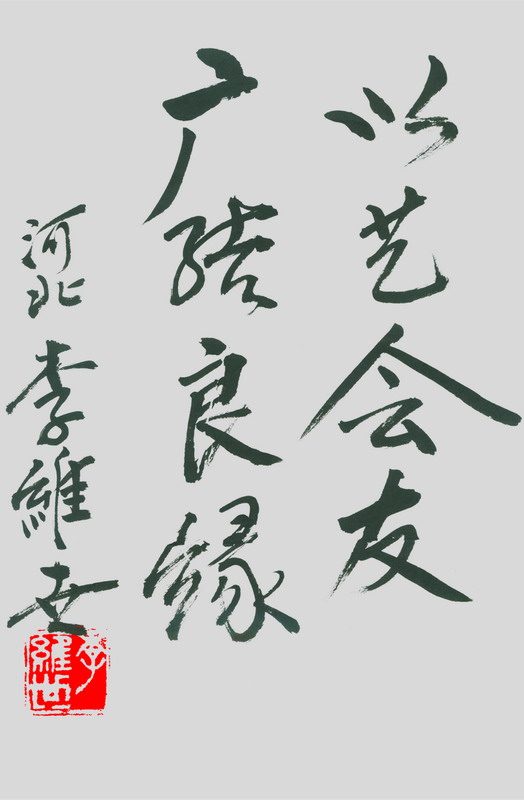 以艺会友
广结良缘
河北李維世
李維世